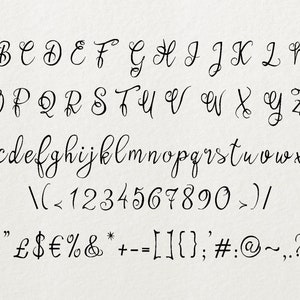 B C D E F G H I J K L
P Q R S T U V W X Y Z
c d e f g h i j k l m n o p q r s t u v w x
\ ( < 1 2 3 4 5 6 7 8 9 0 > ) /
" £ $ € % & * + - = [ ] { } ; ' # : @ ~ , . ?